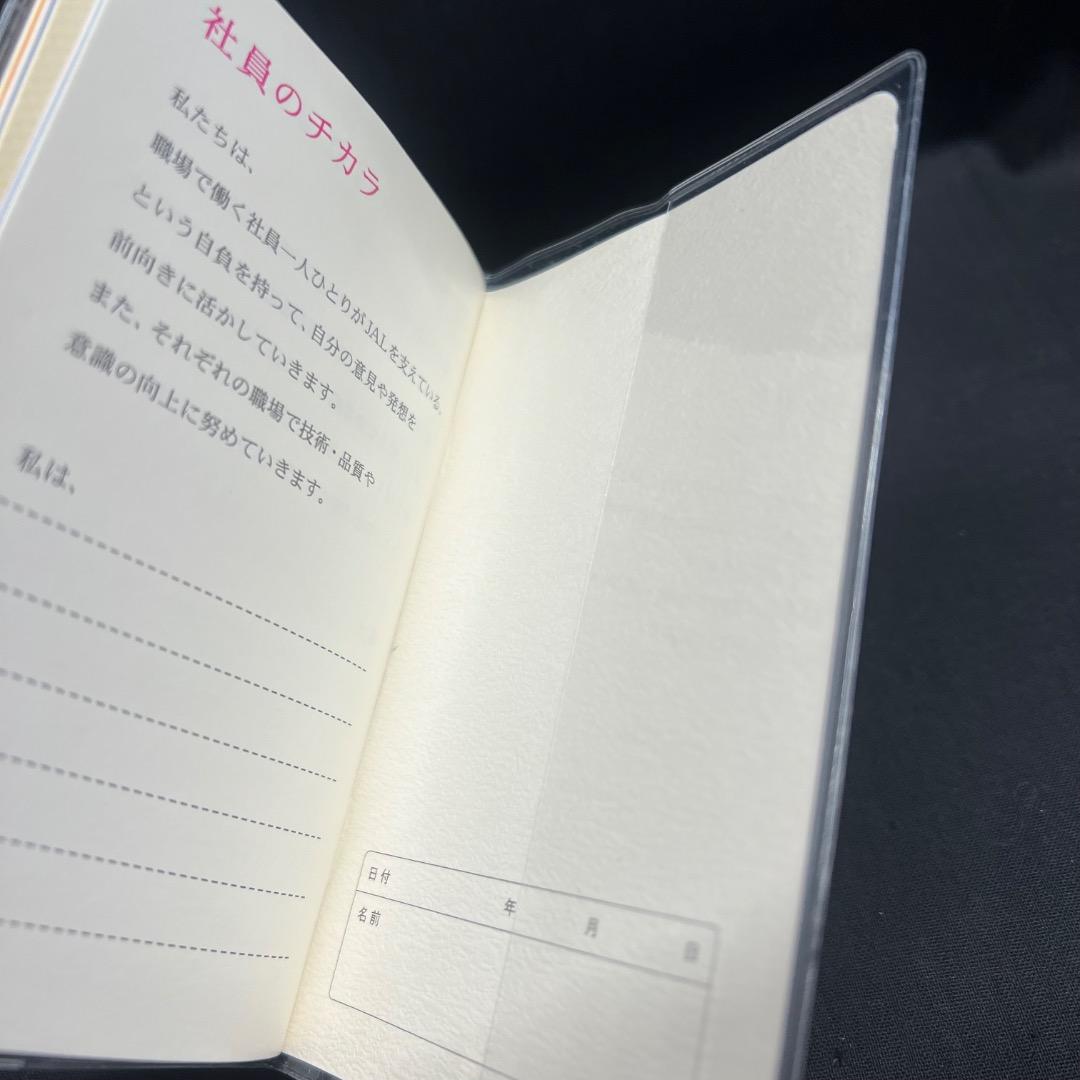 社員のチカラ
私たちは、
職場で働く社員一人ひとりがJALを支えている。
という自負を持って、自分の意見や発想を
前向きに活かしていきます。
また、それぞれの職場で技術・品質や
意識の向上に努めていきます。
私は、
日付 年 月 日
名前